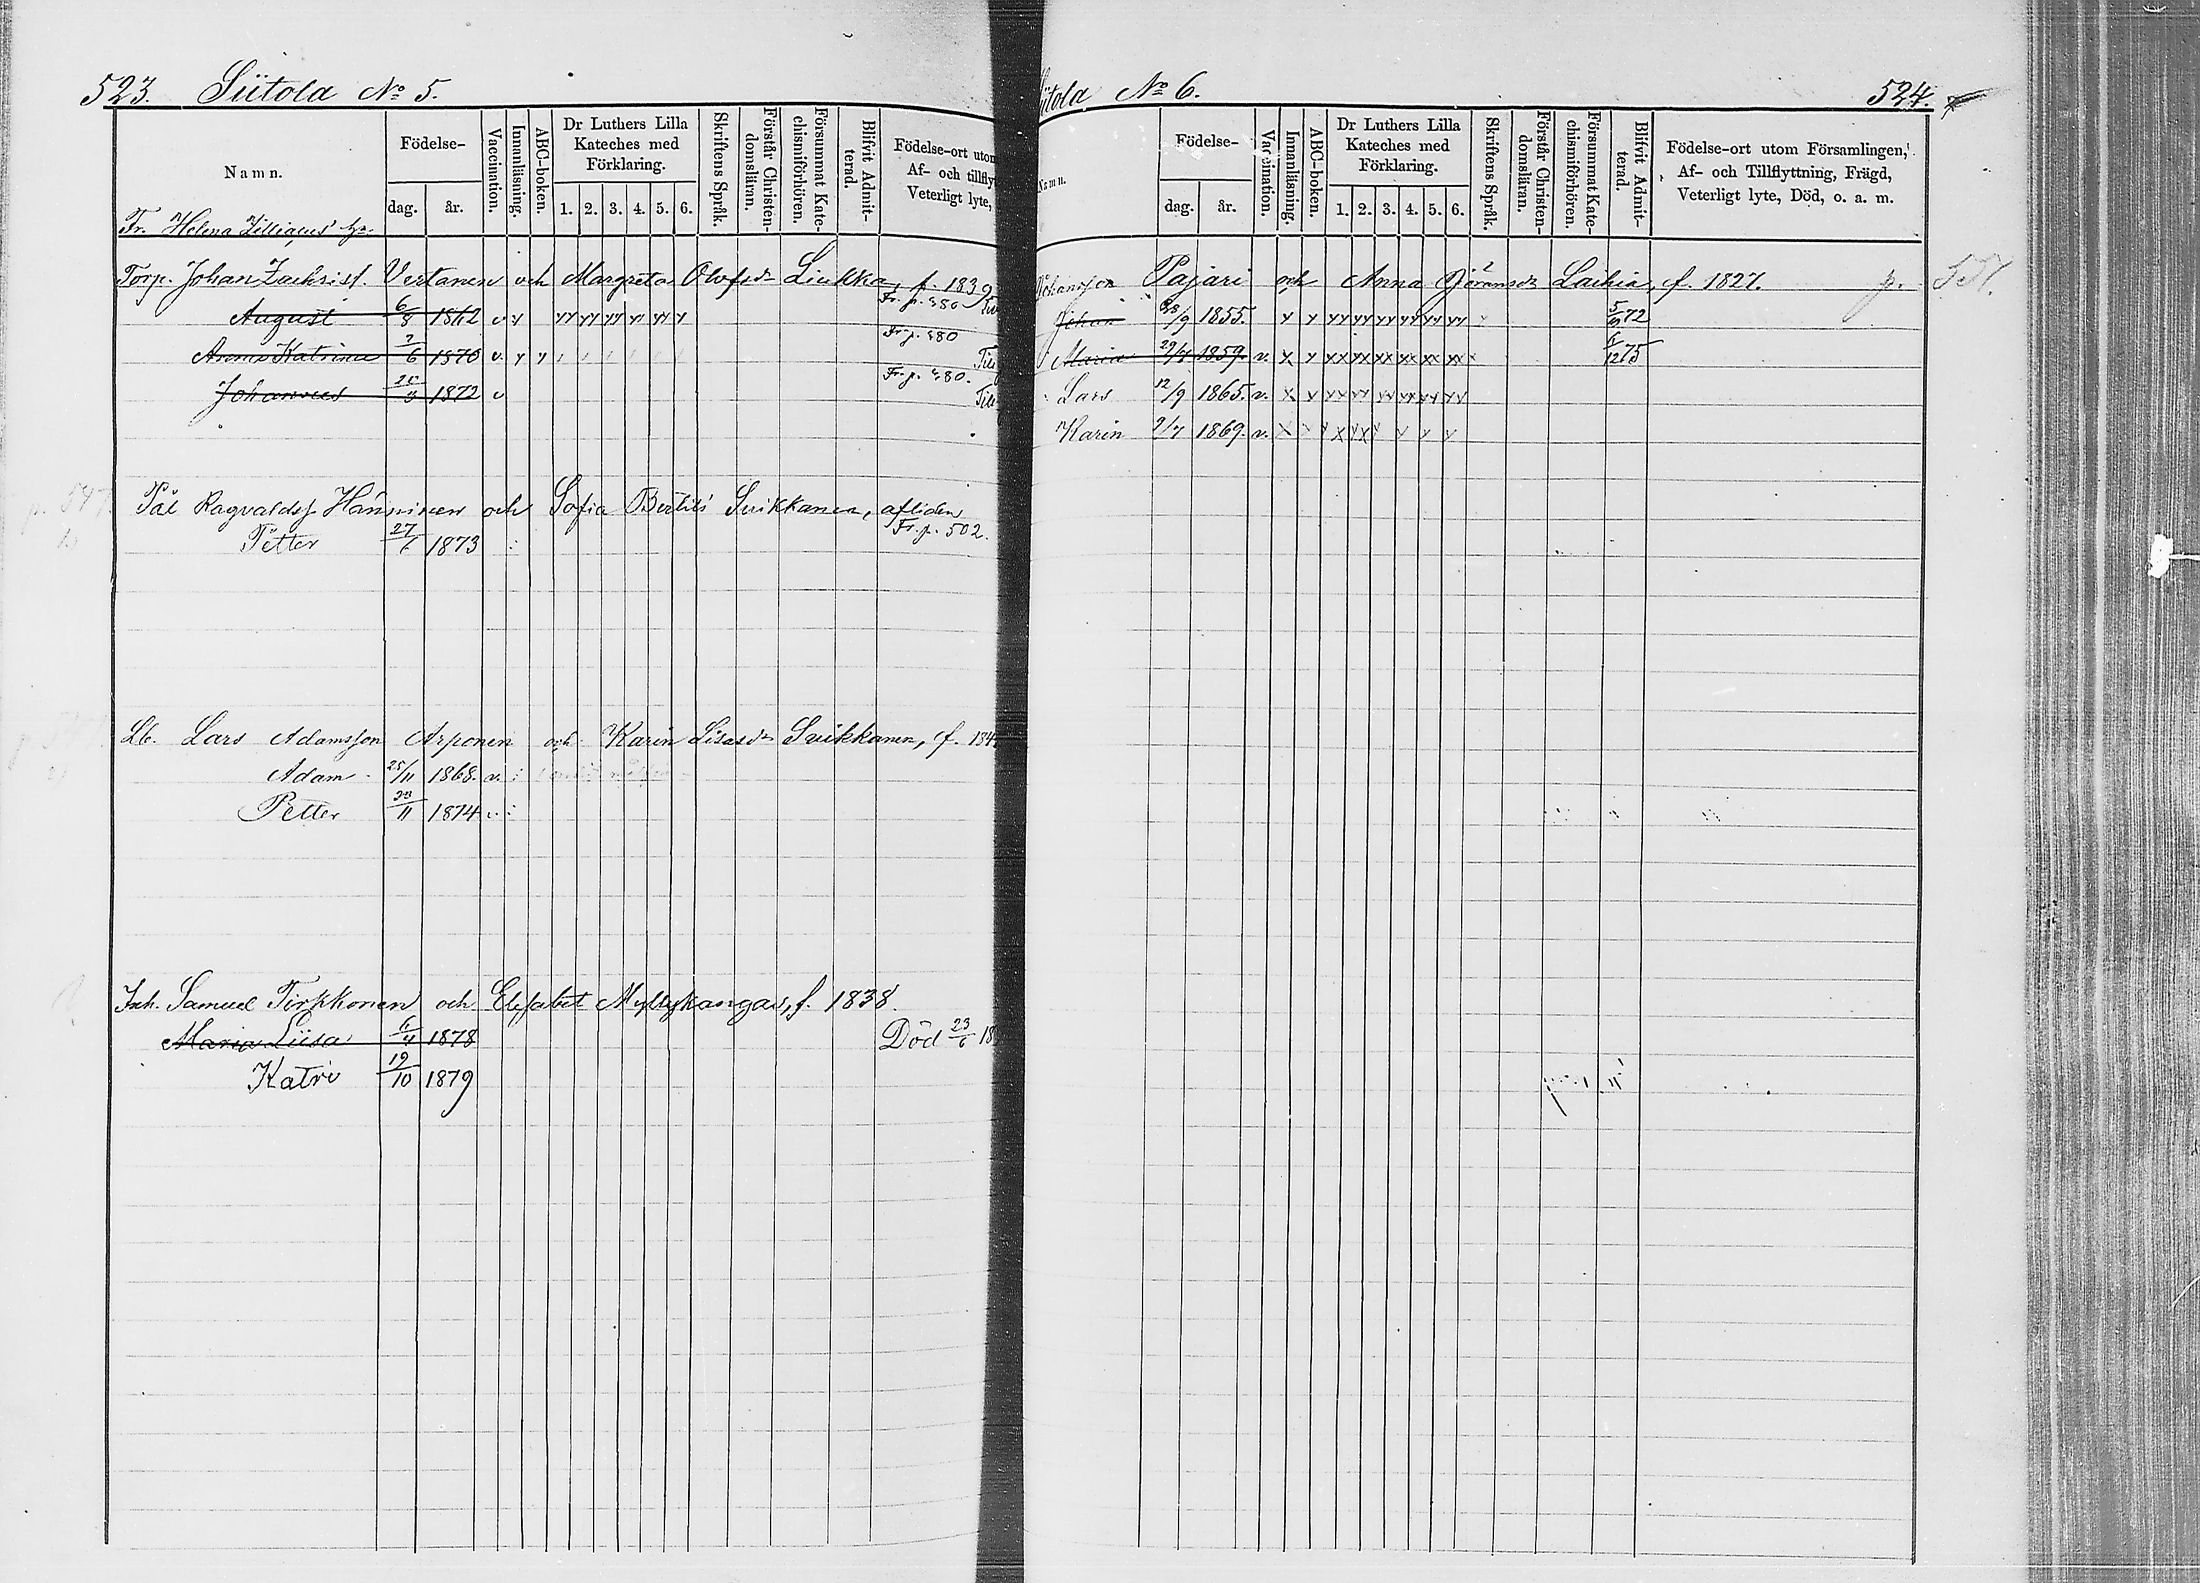 523. Siitola No 5.
Namn.
Födelse-
dag. år.
Vaccination.
Innanläsning.
ABC-boken.
Dr Luthers Lilla Kateches med Förklaring.
1. 2. 3. 4. 5. 6.
Skriftens Språk.
Förstår Christen-domsläran.
Försummat Kate-chismiförhören.
Blifvit Admit-terad.
Födelse-ort utom
Af- och tillfly
Veterligt lyte,
Fr. Helena Zilliacus'
Torp. Johan Zachrisf. Vertanen och Margreta Olofsdr Liukka, f. 1839
August 6/8 1862 v Fr. p. 480
Anna Katrina 7/6 1870 v. Fr. p. 480
Johannes 1872 v Fr. p. 480.
Pål Ragvaldsf Hänninen och Sofia Bertils Suikkanen, afliden
Petter 27/6 1873 Fr. p. 502.
Lb. Lars Adamsson Arponen och Karin Lisasdr Suikkanen, f. 184
Adam 25/11 1868. v.
Petter 23/11 1874 v.
Inh. Samuel Tirkkonen och Elisabet Myllykangas, f. 1838.
Maria Liisa 6/4 1878 Död 23/6 18
Katri 19/10 1879
itola No 6. 524.
Namn.
Födelse-
dag. år.
Vaccination.
Innanläsning.
ABC-boken.
Dr Luthers Lilla Kateches med Förklaring.
1. 2. 3. 4. 5. 6.
Skriftens Språk.
Förstår Christen-domsläran.
Försummat Kate-chismiförhören.
Blifvit Admit-terad.
Födelse-ort utom Församlingen,
Af- och Tillflyttning, Frägd,
Veterligt lyte, Död, o. a. m.
Johansson Pajari och Anna Göransdr Laihia, f. 1827. p.
Johan 28/9 1855. 72
Maria 29/7 1859. v. 75
Lars 12/9 1865. v.
Karin 2/7 1869. v.